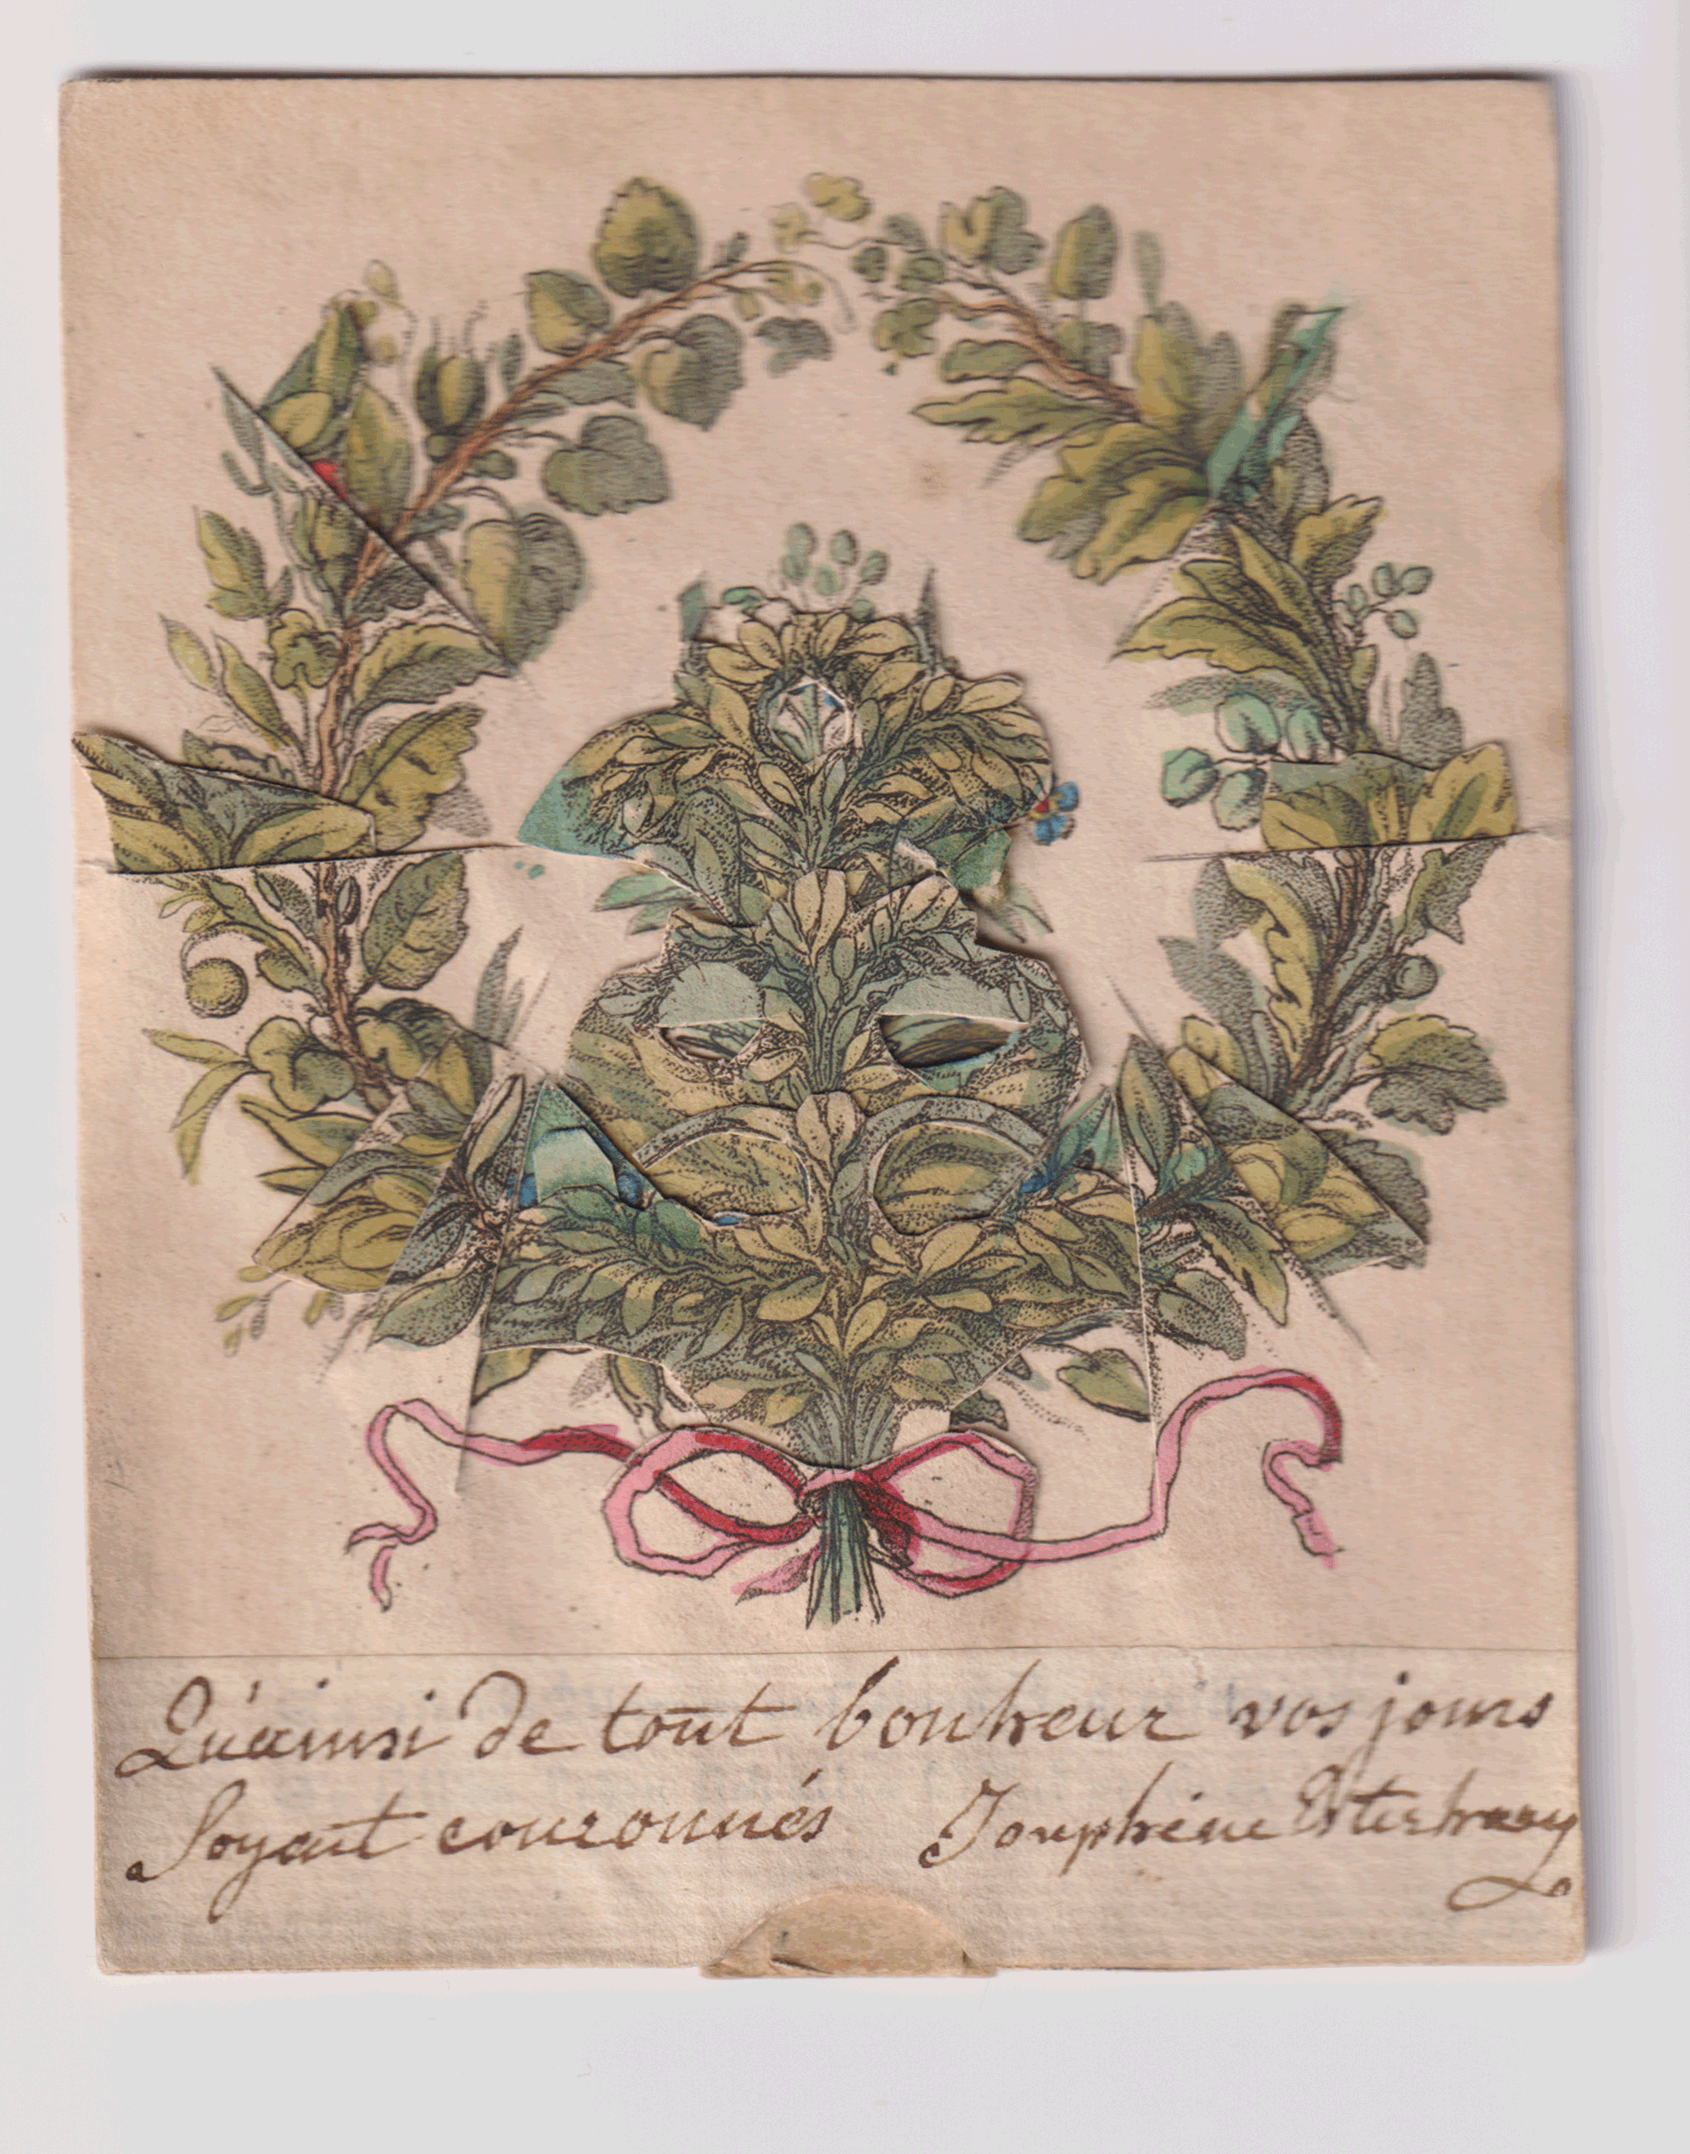 Qu'ainsi de tout bonheur vos jours
Soyent couronnés Josephine Esterhazy